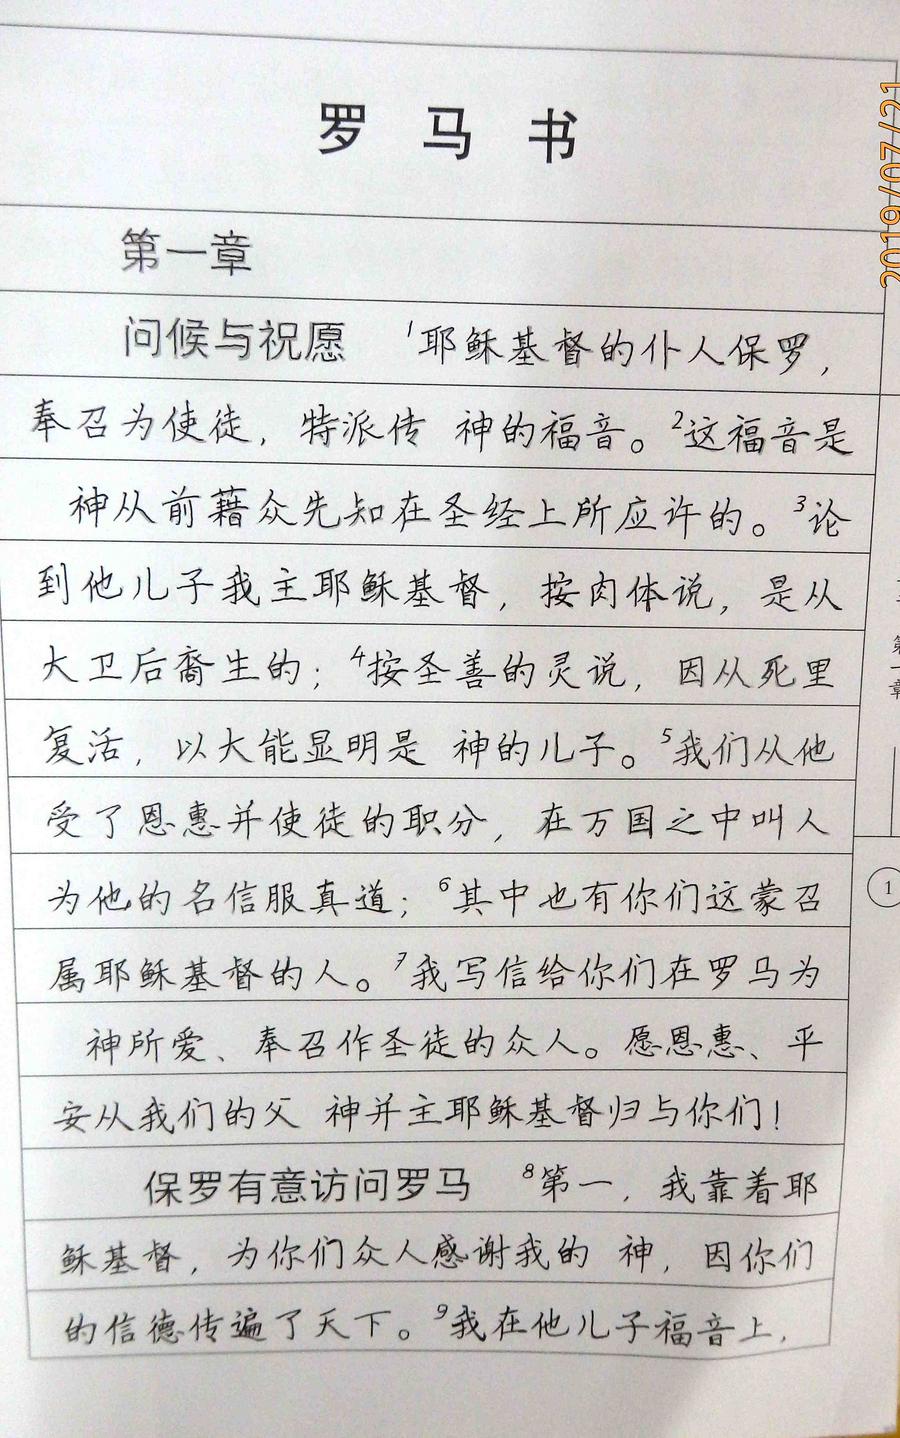 罗马书
第一章
问候与祝愿 ¹耶稣基督的仆人保罗，
奉召为使徒，特派传 神的福音。²这福音是
神从前藉众先知在圣经上所应许的。³论
到他儿子我主耶稣基督，按肉体说，是从
大卫后裔生的；⁴按圣善的灵说，因从死里
复活，以大能显明是 神的儿子。⁵我们从他
受了恩惠并使徒的职分，在万国之中叫人
为他的名信服真道；⁶其中也有你们这蒙召
属耶稣基督的人。⁷我写信给你们在罗马为
神所爱、奉召作圣徒的众人。愿恩惠、平
安从我们的父 神并主耶稣基督归与你们！
保罗有意访问罗马 ⁸第一，我靠着耶
稣基督，为你们众人感谢我的 神，因你们
的信德传遍了天下。⁹我在他儿子福音上，
第一章
1
2019/07/21